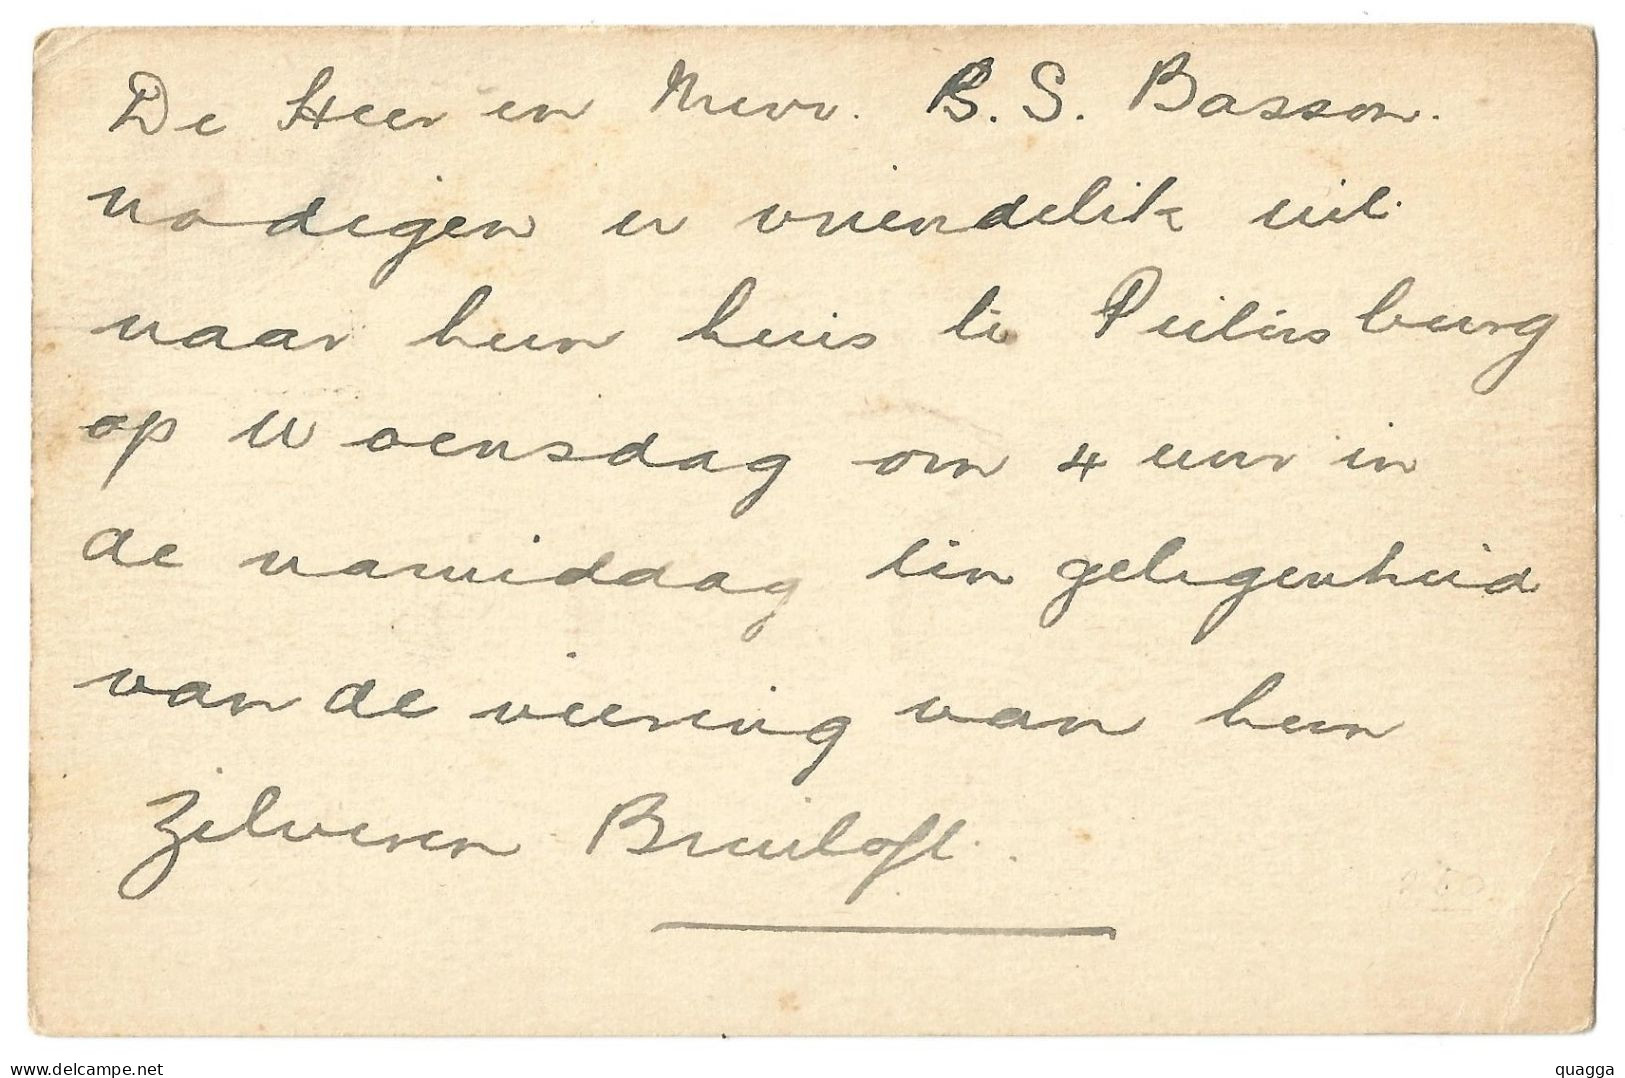 De Heer en Mevr. B. S. Basson.
nodigen u vriendelik uit
naar hun huis te Pietersburg
op Woensdag om 4 uur in
de namiddag ten gelegenheid
van de viering van hun
Zilveren Bruiloft.
www.delcampe.net
quagga